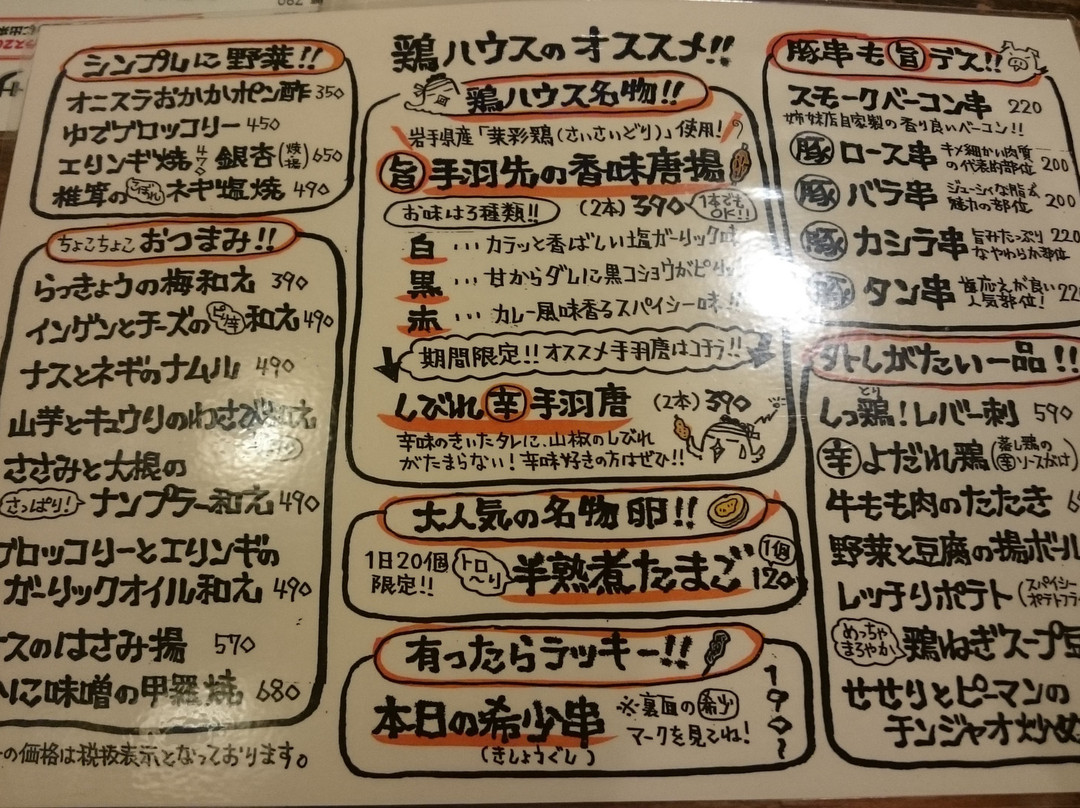 シンプルに野菜!!
オニスラおかかポン酢 350
ゆでブロッコリー 450
エリンギ焼 470 銀杏(焼・揚) 650
椎茸のこぼれネギ塩焼 490
ちょこちょこおつまみ!!
らっきょうの梅和え 390
インゲンとチーズのピリ辛和え 490
ナスとネギのナムル 490
山芋とキュウリのわさび和え
ささみと大根の
さっぱり!ナンプラー和え 490
ブロッコリーとエリンギの
ガーリックオイル和え 490
スのはさみ揚 570
かに味噌の甲羅焼 680
の価格は税抜表示となっております。
鶏ハウスのオススメ!!
鶏ハウス名物!!
岩手県産「菜彩鶏(さいさいどり)」使用!
旨 手羽先の香味唐揚
お味は3種類!! (2本)390 1本でもOK!!
白…カラッと香ばしい塩ガーリック味
黒…甘からダレに黒コショウがピリッ
赤…カレー風味香るスパイシー味!!
期間限定!!オススメ手羽唐はコチラ!!
しびれ辛手羽唐 (2本)390
辛味のきいたタレに、山椒のしびれ
がたまらない!辛味好きの方はぜひ!!
大人気の名物卵!!
1日20個限定!! トロ〜り 半熟煮たまご 1個 120
有ったらラッキー!!
本日の希少串 190〜
(きしょうぐし)
※裏面の希少
マークを見てね!
豚串も旨デス!!
スモークベーコン串 220
姉妹店自家製の香り良いベーコン!!
豚 ロース串 キメ細かい肉質の代表的部位 200
豚 バラ串 ジューシーな脂も魅力の部位 200
豚 カシラ串 旨みたっぷりなやわらか部位 220
豚 タン串 歯応えが良い人気部位! 22
ハズしがたい一品!!
しっ鶏!レバー刺 590
とり
辛 よだれ鶏(蒸し鶏の辛ソースがけ)
牛もも肉のたたき 6
野菜と豆腐の揚ボール
レッチリポテト(スパイシーポテトフラ
めっちゃまろやか 鶏ねぎスープ豆
せせりとピーマンの
チンジャオ炒め